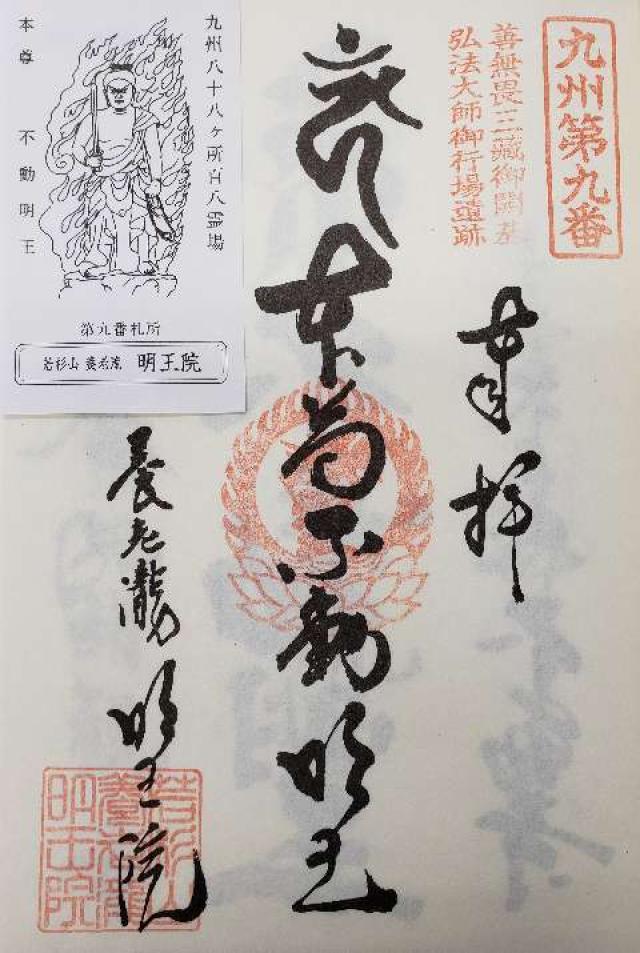 九州第九番
善無畏三蔵御開基
弘法大師御行場遺跡
奉拝
本尊不動明王
養老瀧
明王院
若杉山
養老瀧
明王院
九州八十八ヶ所百八霊場
本尊 不動明王
第九番札所
若杉山 養老院 明王院